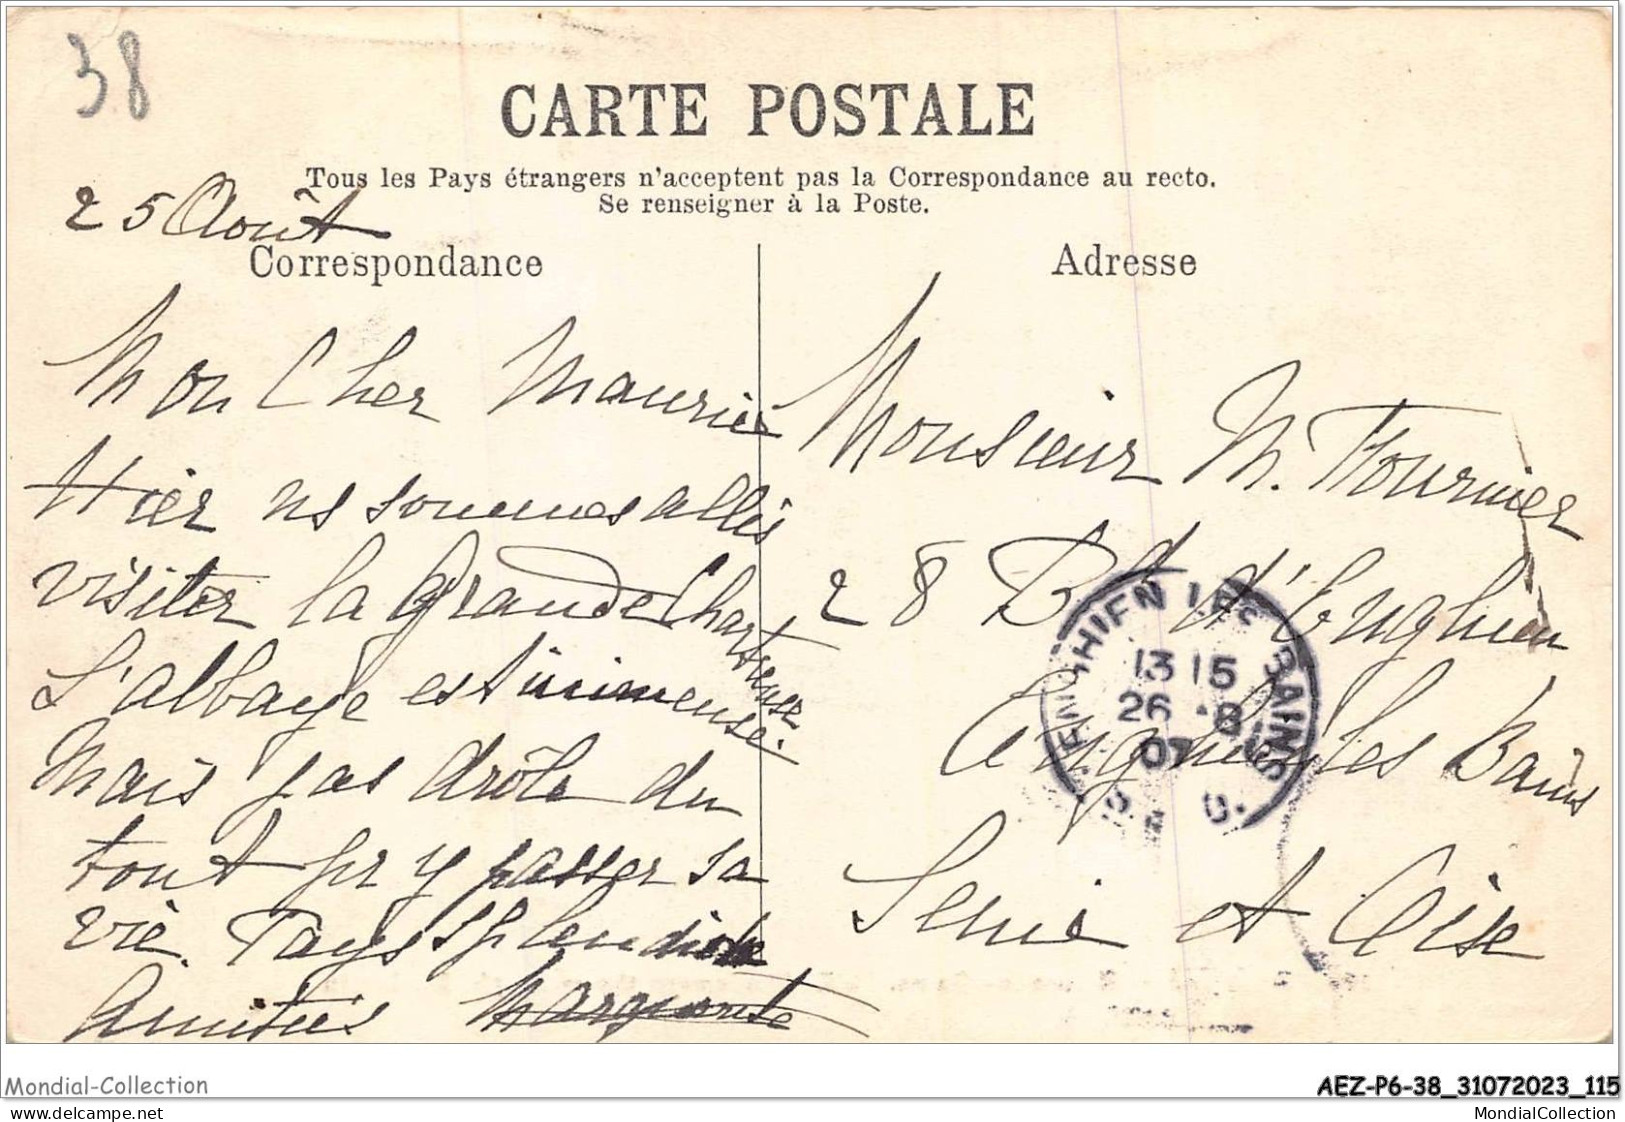 38
CARTE POSTALE
Tous les Pays étrangers n'acceptent pas la Correspondance au recto.
Se renseigner à la Poste.
25 Août
Correspondance
Mon Cher Maurice
Hier ns sommes allés
visiter la Grande Chartreuse
L'abbaye est immense.
Mais pas drôle du
tout pr y passer sa
vie. Pays splendide
Amitiés Marguerite
Adresse
Monsieur M. Fournier
28 Bd d'Enghien
Enghien les Bains
Seine et Oise
ENGHIEN LES BAINS
13 15
26 -8
07
Mondial-Collection
AEZ-P6-38_31072023_115
MondialCollection